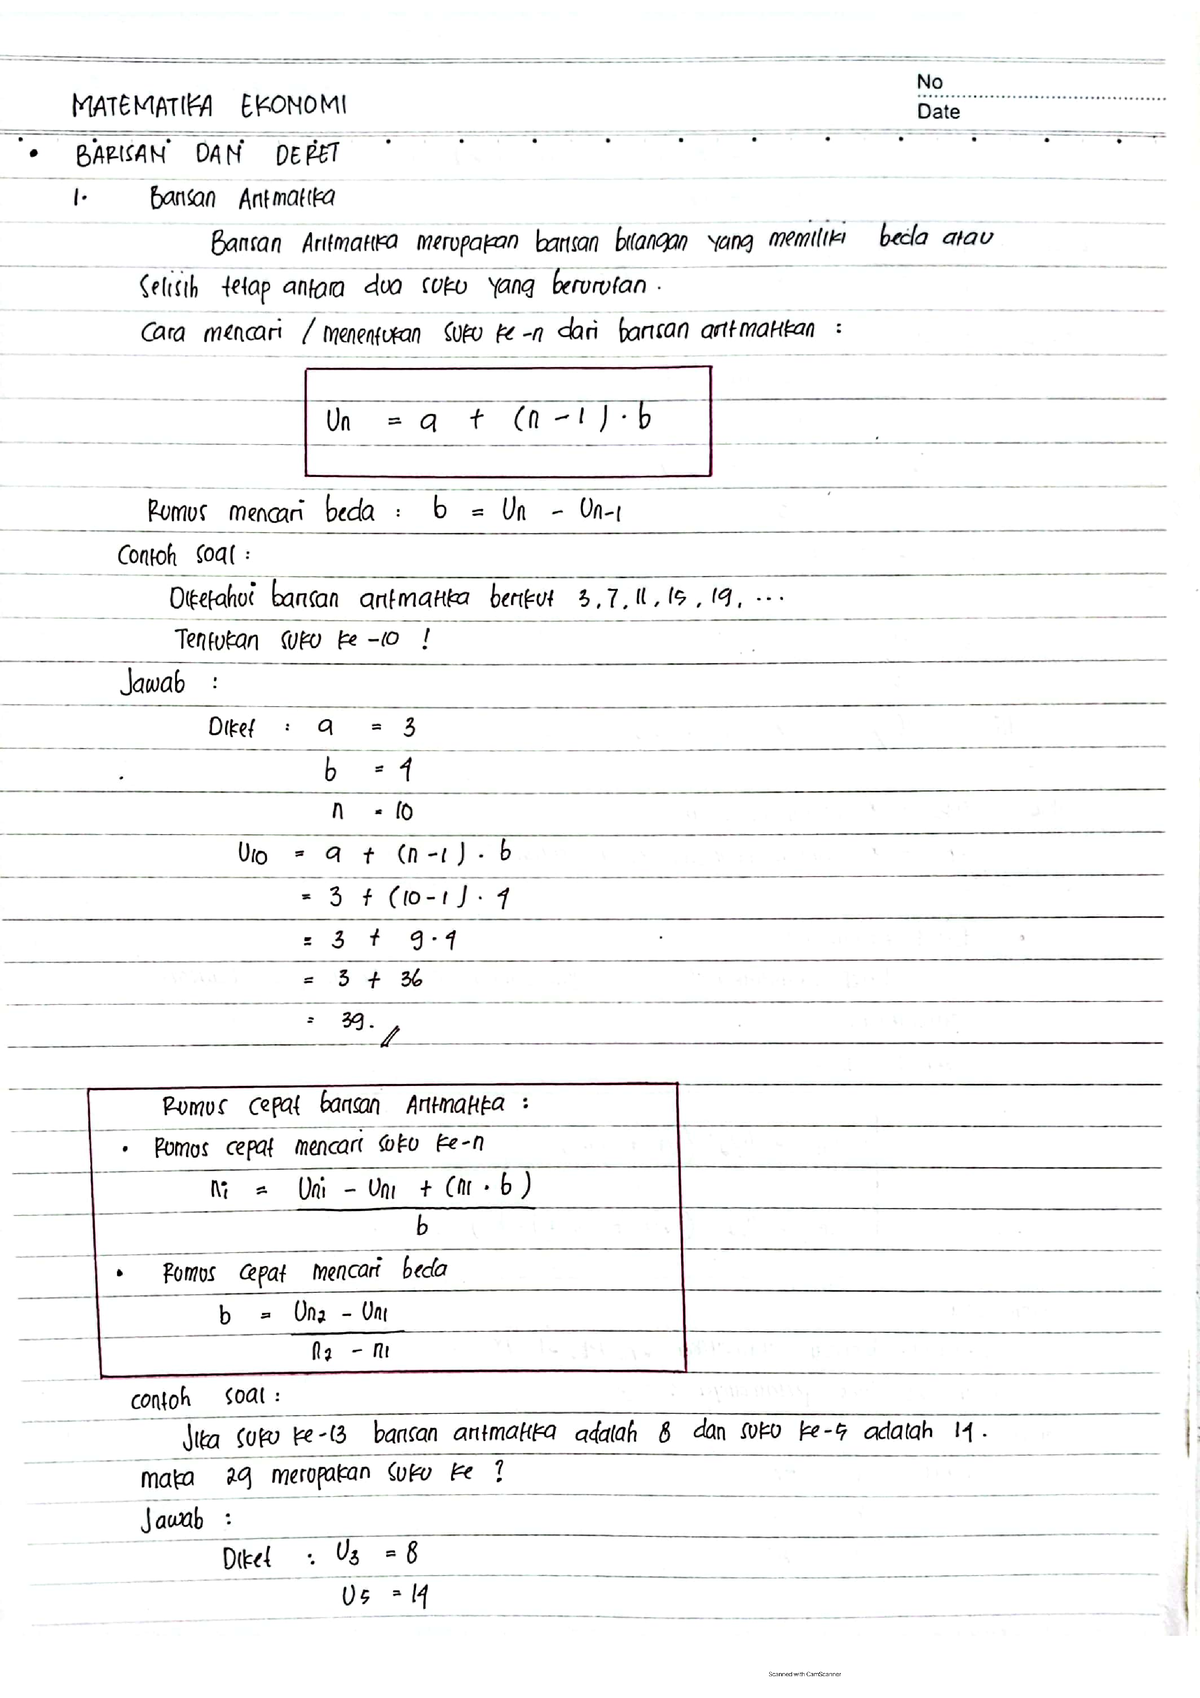 No
MATEMATIKA EKONOMI
Date
• BARISAN DAN DERET
1. Barisan Aritmatika
Barisan Aritmatika merupakan barisan bilangan yang memiliki beda atau
Selisih tetap antara dua suku yang berurutan.
Cara mencari / menentukan suku ke-n dari barisan aritmatikan :
Un = a + (n-1) · b
Rumus mencari beda : b = Un - Un-1
Contoh soal :
Diketahui barisan aritmatika berikut 3, 7, 11, 15, 19, ...
Tentukan suku ke-10 !
Jawab :
Diket : a = 3
b = 4
n = 10
U10 = a + (n-1) . b
= 3 + (10-1) . 4
= 3 + 9.4
= 3 + 36
= 39.//
Rumus cepat barisan Aritmatika :
• Rumus cepat mencari suku ke-n
ni = Uni - Un1 + (n1 . b)
b
• Rumus cepat mencari beda
b = Un2 - Un1
n2 - n1
contoh soal :
Jika suku ke-13 barisan aritmatika adalah 8 dan suku ke-5 adalah 14.
maka 29 merupakan suku ke ?
Jawab :
Diket : U3 = 8
U5 = 14
Scanned with CamScanner